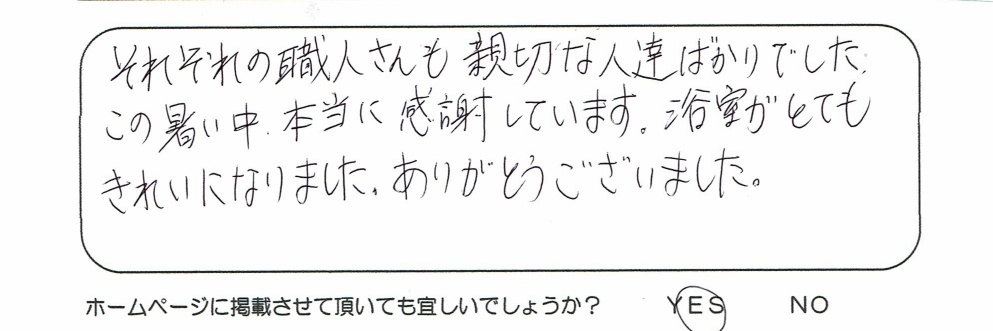 それぞれの職人さんも親切な人達ばかりでした.
この暑い中.本当に感謝しています。浴室がとても
きれいになりました.ありがとうございました。
ホームページに掲載させて頂いても宜しいでしょうか? YES NO